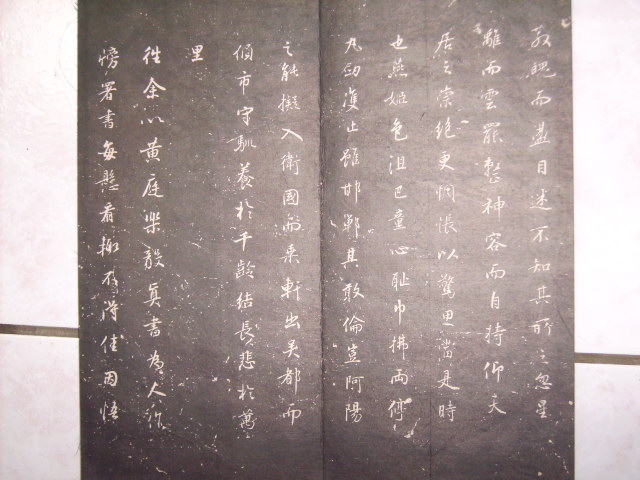 散魄而盪目迷不知其所之忽星
離而雲罷整神容而自持仰天
居之崇絶更惆悵以驚思當是時
也燕姬色沮巴童心恥巾拂兩停
丸劒雙止雖邯鄲其敢倫豈阿陽
之能擬入衛國而乘軒出吳都而
傾市守馴養於千齡結長悲於萬
里
往余以黄庭樂毅真書為人作
榜署書每懸看輒不得佳因悟